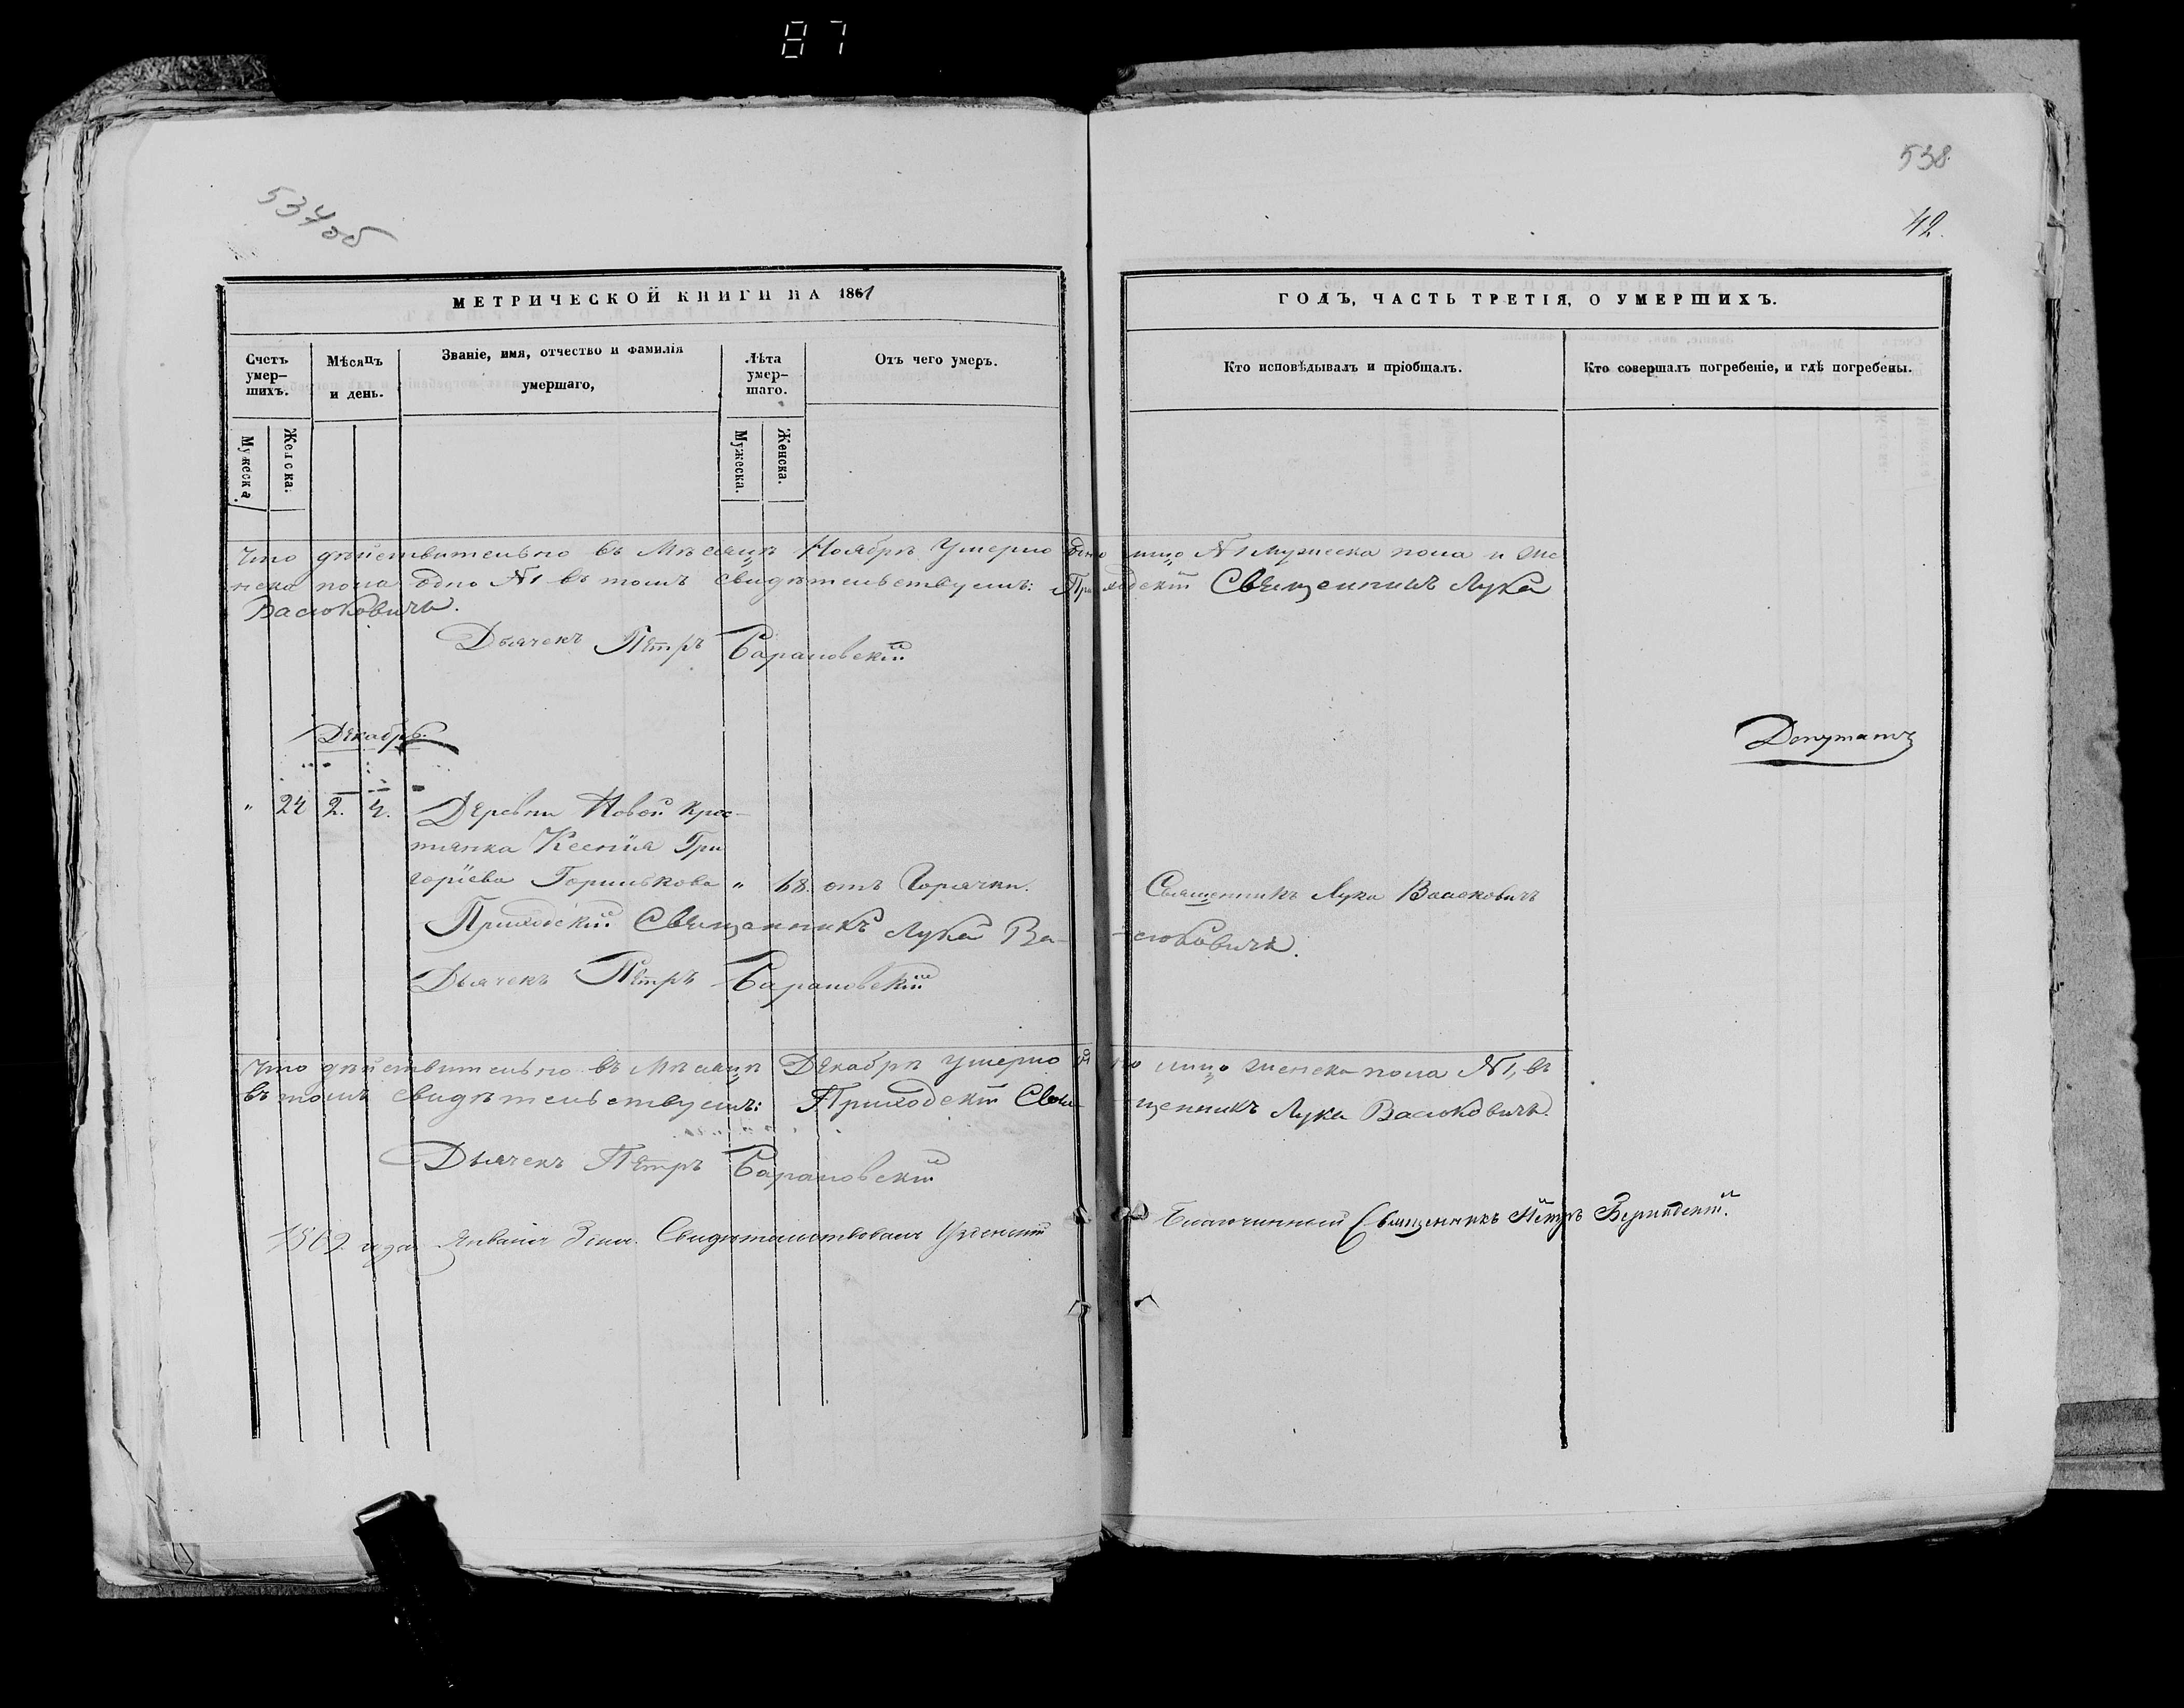 87
534 об
538.
42.
МЕТРИЧЕСКОЙ КНИГИ НА 1861
ГОДЪ, ЧАСТЬ ТРЕТІЯ, О УМЕРШИХЪ.
Счетъ умер-шихъ.
Мѣсяцъ и день.
Званіе, имя, отчество и фамилія умершаго,
Лѣта умер-шаго.
Отъ чего умеръ.
Кто исповѣдывалъ и пріобщалъ.
Кто совершалъ погребеніе, и гдѣ погребены.
Мужеска.
Женска.
Мужеска.
Женска.
Что дѣйствительно въ Мѣсяцѣ Ноябрѣ Умерло лицо №1 Мужеска пола и Же
нска пола одно №1 въ томъ свидѣтельствуемъ: Приходскій Священникъ Лука
Васюковичъ.
Дьячекъ Петръ Барановскій
Декабрь.
Депутатъ
" 24 2. 4. Деревни Новой Крес-
тянка Ксенія Гри
горіева Горнькова " 68. отъ Горячки. Священникъ Лука Васюковичъ
Приходскій Священникъ Лука Ва-сюковичъ.
Дьячекъ Петръ Барановскій
Что дѣйствительно въ Мѣсяцѣ Декабрѣ умерло лицо женска пола №1, въ
въ томъ свидѣтельствуемъ: Приходскій Свя-щенникъ Лука Васюковичъ.
Дьячекъ Петръ Барановскій
1862 года Января 3 дня. Свидѣтельствовалъ Благочинный Священникъ Петръ